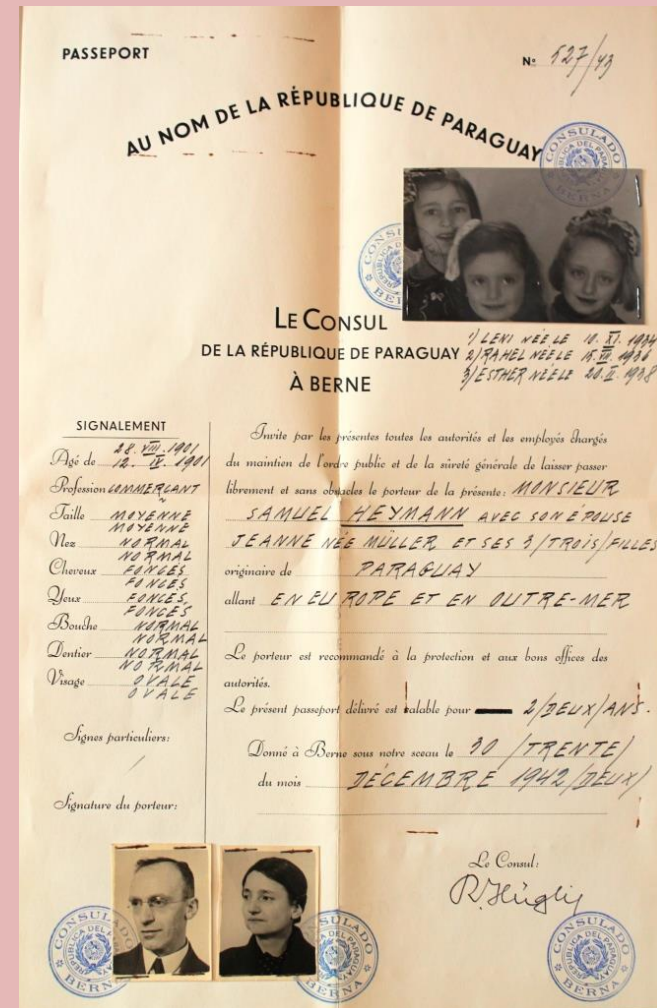 PASSEPORT
Nº 527/43
AU NOM DE LA RÉPUBLIQUE DE PARAGUAY
CONSULADO
REPÚBLICA DEL PARAGUAY
BERNA
LE CONSUL
DE LA RÉPUBLIQUE DE PARAGUAY
À BERNE
1) LENI NÉE LE 10. XI. 1934
2) RAHEL NÉE LE 15. 1936
3) ESTHER NÉE LE 20. II. 1938
SIGNALEMENT
28. VIII. 1901
Agé de 12. IV. 1901
Profession COMMERÇANT
Taille MOYENNE
MOYENNE
Nez NORMAL
NORMAL
Cheveux FONCÉS
FONCÉS
Yeux FONCÉS
FONCÉS
Bouche NORMAL
NORMAL
Dentier NORMAL
NORMAL
Visage OVALE
OVALE
Signes particuliers:
/
Signature du porteur:
Invite par les présentes toutes les autorités et les employés chargés
du maintien de l'ordre public et de la sûreté générale de laisser passer
librement et sans obstacles le porteur de la présente: MONSIEUR
SAMUEL HEYMANN AVEC SON ÉPOUSE
JEANNE NÉE MÜLLER ET SES 3/TROIS/FILLES
originaire de PARAGUAY
allant EN EUROPE ET EN OUTRE-MER
Le porteur est recommandé à la protection et aux bons offices des
autorités.
Le présent passeport délivré est valable pour 2/DEUX/ANS.
Donné à Berne sous notre sceau le 30 /TRENTE/
du mois DÉCEMBRE 1942/DEUX/
Le Consul:
R. Hügli
CONSULADO
BERNA
CONSULADO
BERNA
CONSULADO
REPÚBLICA DEL PARAGUAY
BERNA